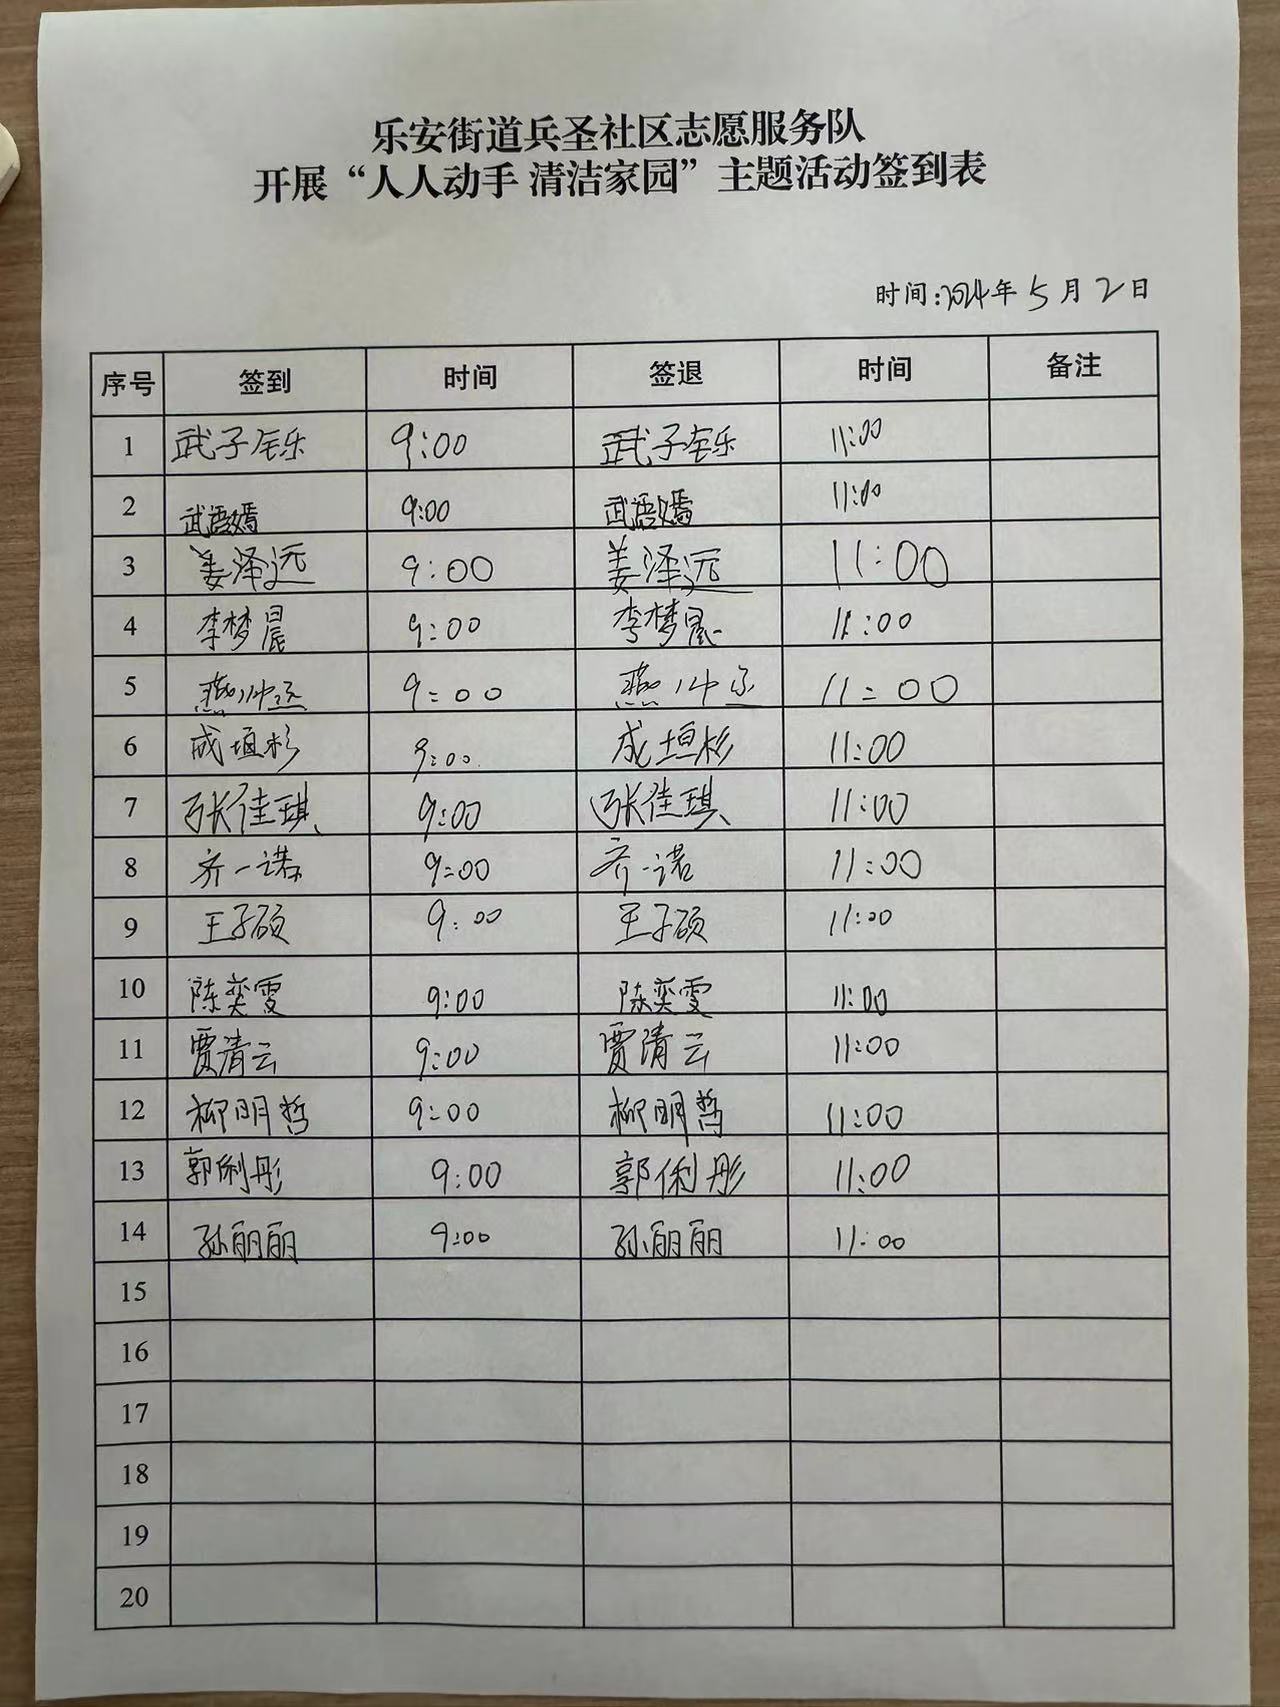 乐安街道兵圣社区志愿服务队
开展“人人动手 清洁家园”主题活动签到表
时间:2024年5月2日
序号 签到 时间 签退 时间 备注
1 武子钰乐 9:00 武子钰乐 11:00
2 武语嫣 9:00 武语嫣 11:00
3 姜泽远 9:00 姜泽远 11:00
4 李梦晨 9:00 李梦晨 11:00
5 燕 9:00 燕 11:00
6 成垣杉 9:00 成垣杉 11:00
7 张佳琪 9:00 张佳琪 11:00
8 齐一诺 9:00 齐一诺 11:00
9 王子硕 9:00 王子硕 11:00
10 陈奕雯 9:00 陈奕雯 11:00
11 贾清云 9:00 贾清云 11:00
12 柳明哲 9:00 柳明哲 11:00
13 郭俐彤 9:00 郭俐彤 11:00
14 孙丽丽 9:00 孙丽丽 11:00
15
16
17
18
19
20